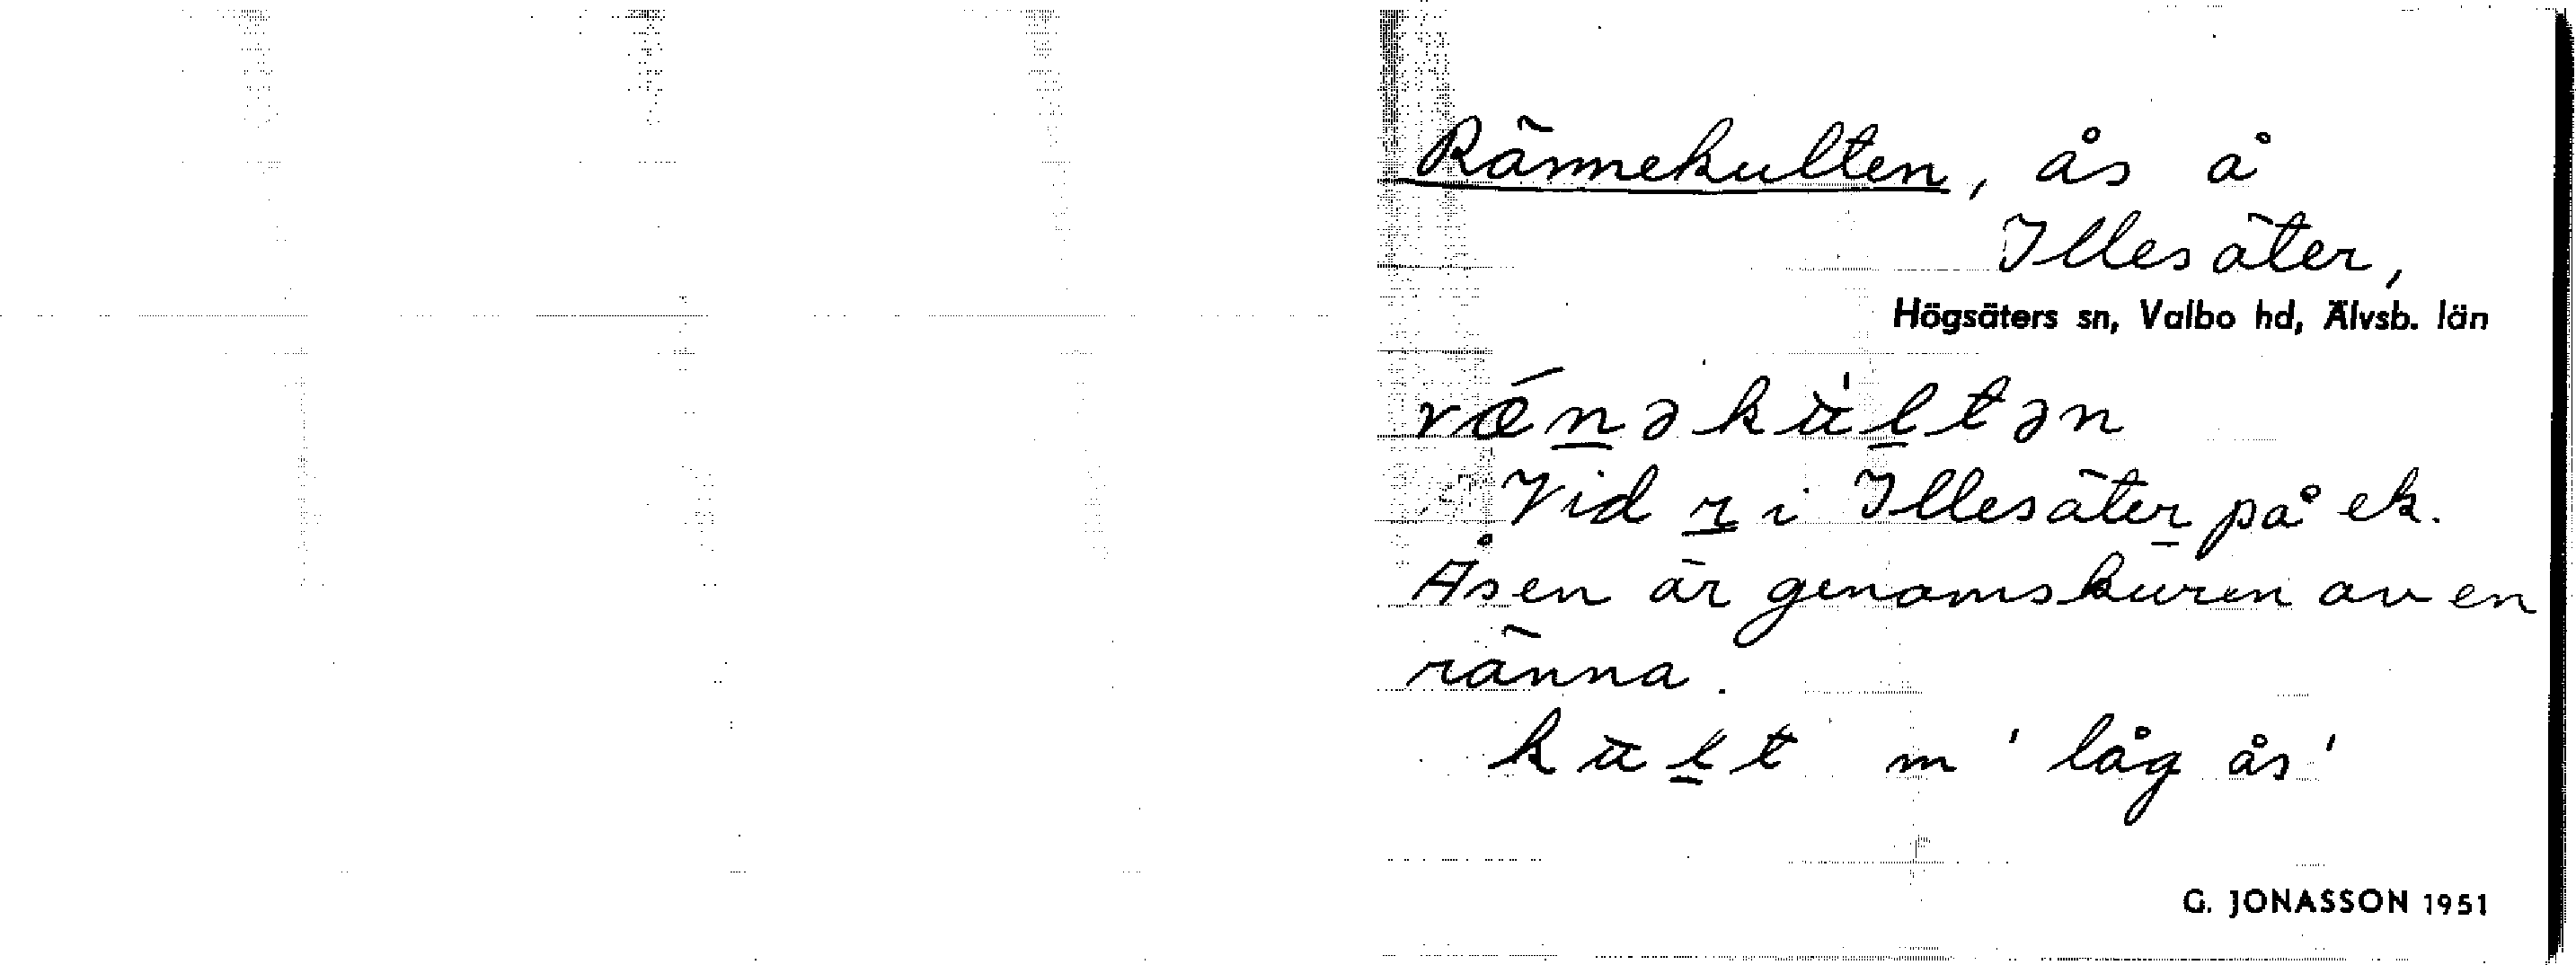 Rännekulten, ås å
Illesäter,
Högsäters sn, Valbo hd, Älvsb. län
rǽnəkü̍ltən
Vid r i Illesäter på ek.
Åsen är genomskuren av en
ränna.
kült m 'låg ås'
G. JONASSON 1951